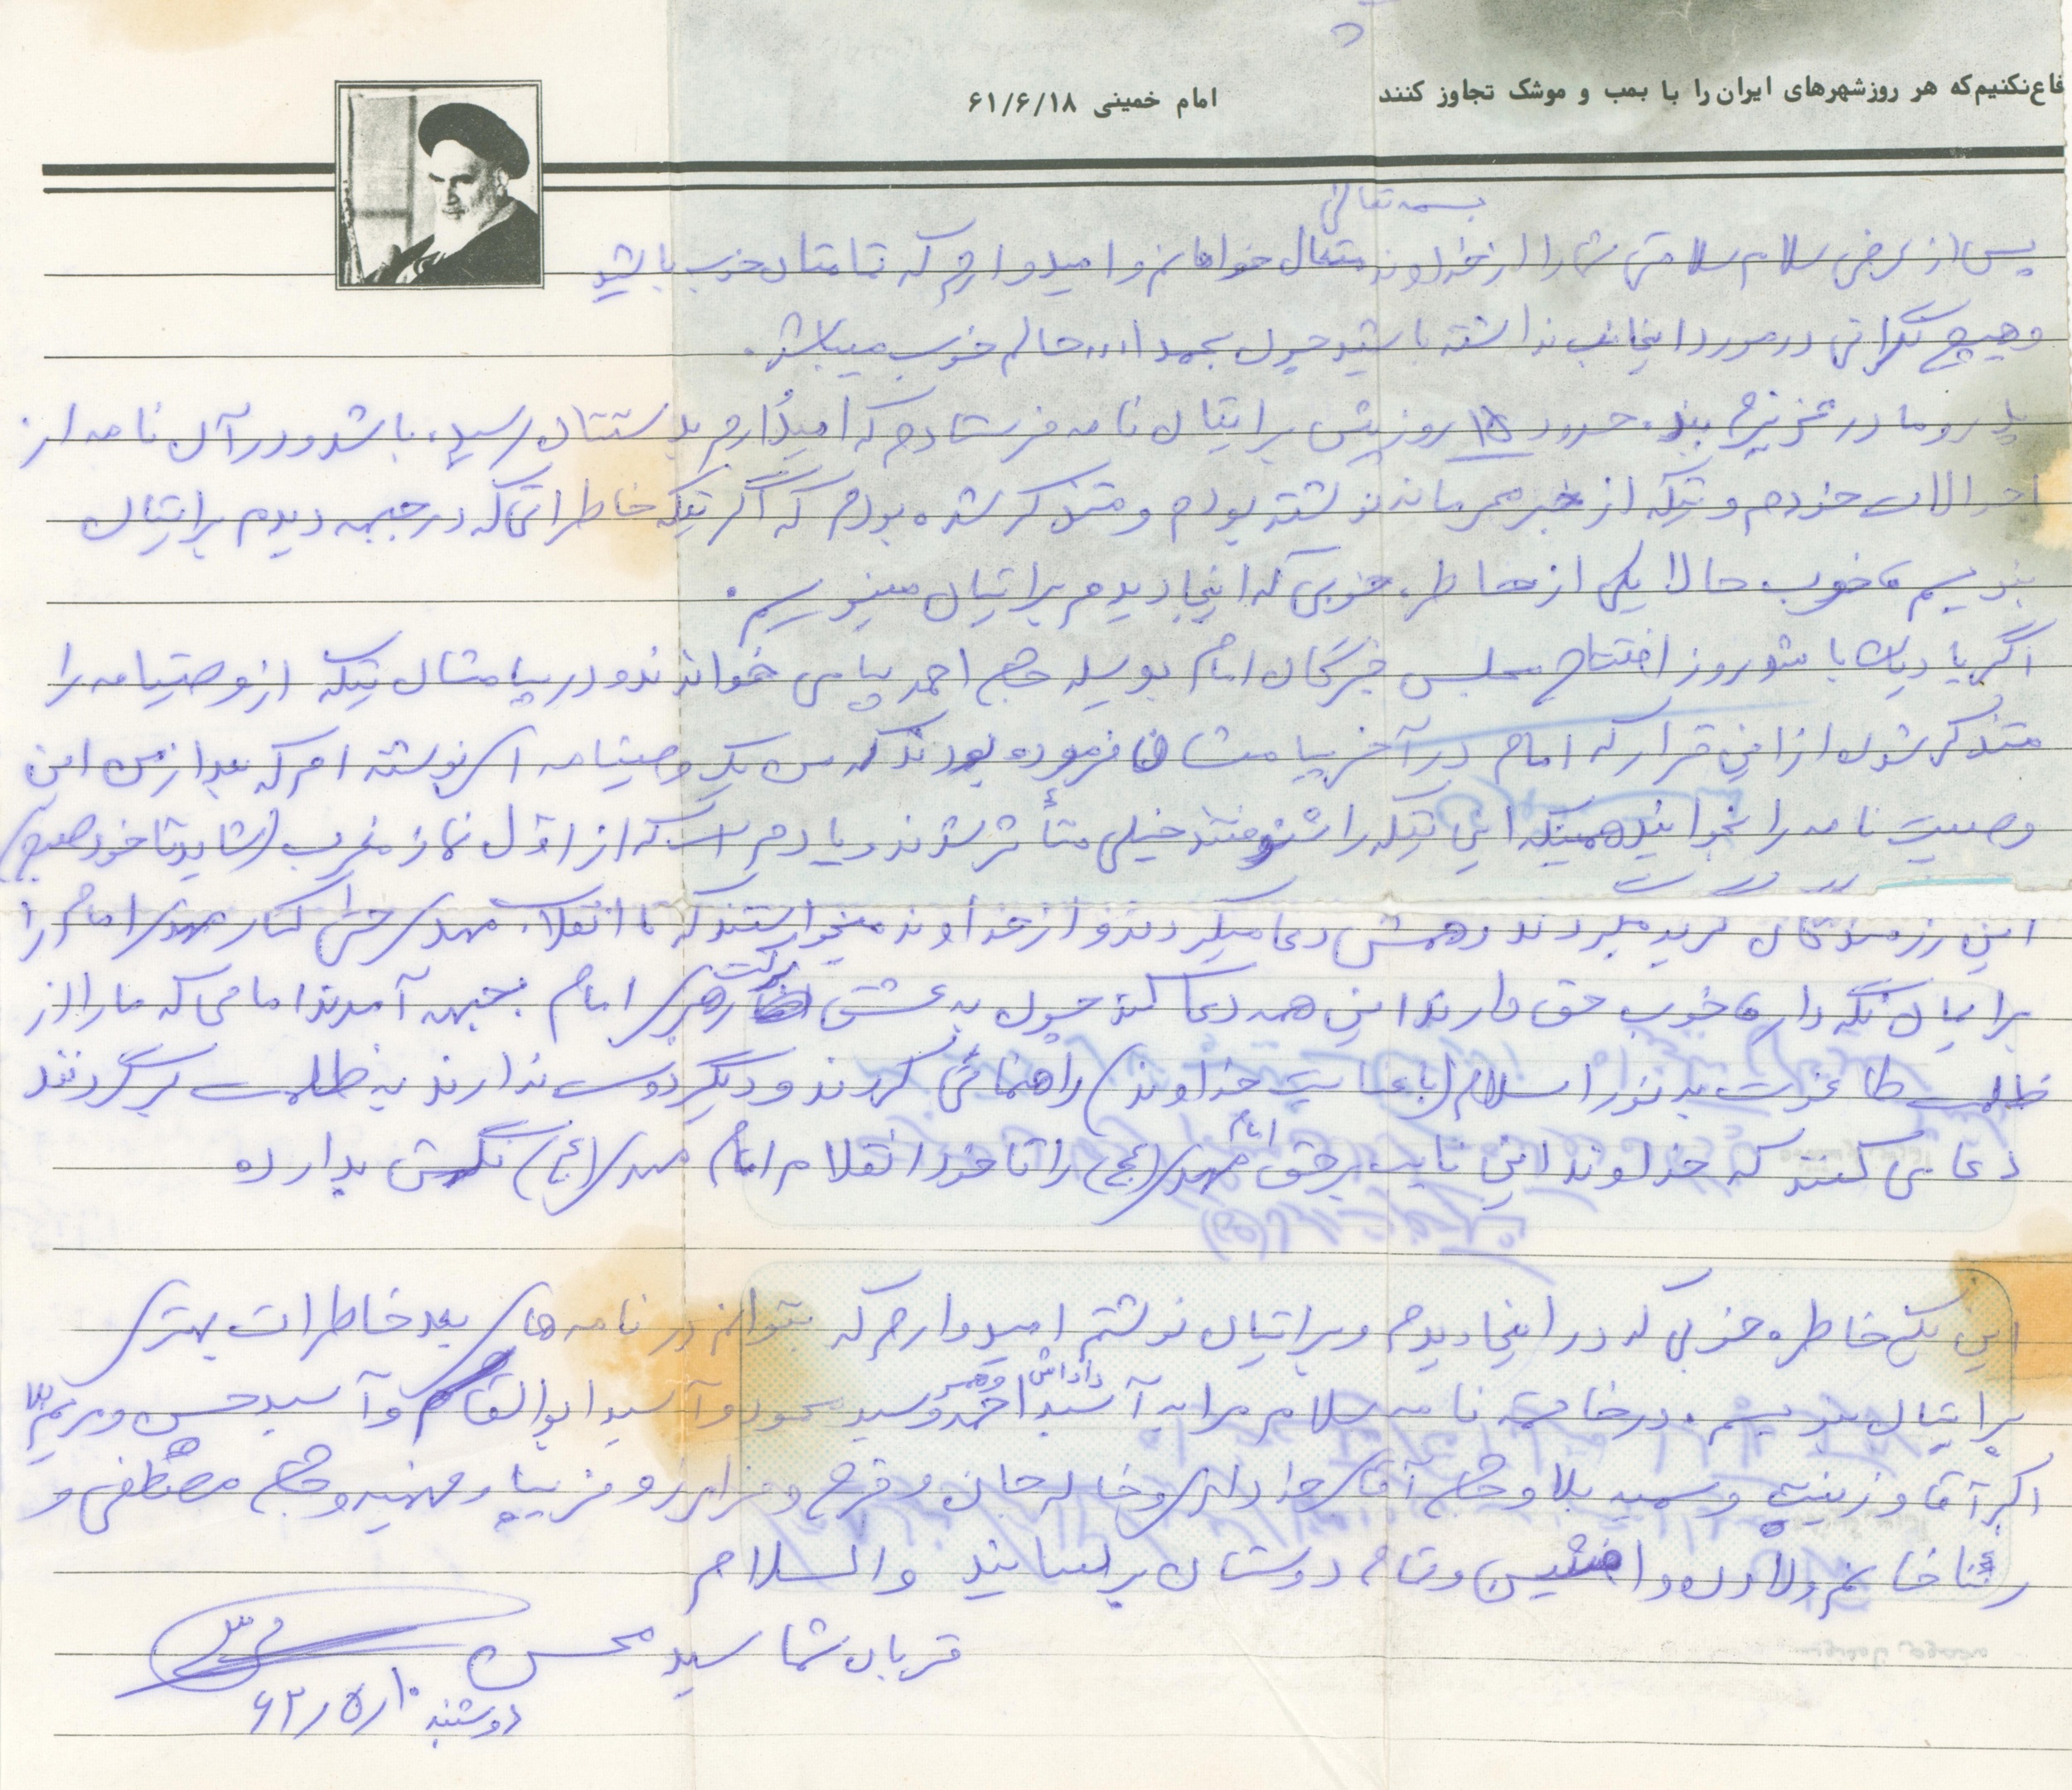 فاع نکنیم که هر روز شهرهای ایران را با بمب و موشک تجاوز کنند امام خمینی ۶۱/۶/۱۸
بسمه تعالی
پس از عرض سلام سلامتی شما را از خداوند متعال خواهانم و امیدوارم که تمامتان خوب باشید
و هیچ نگرانی در مورد اینجانب نداشته باشید چون بحمدالله حالم خوب میباشد.
پدر و مادر عزیزم بنده حدود ۱۵ روز پیش برایتان نامه فرستادم که امیدوارم بدستتان رسیده باشد و در آن نامه از
احوالات خودم و تیکه از نوشته بودم و متذکر شده بودم که اگر تیکه خاطراتی که در جبهه دیدم برایتان
بنویسم، خوب حالا یکی از خاطره خوبی که اینجا دیدم برایتان مینویسم.
اگر یادتان باشد روز افتتاح مجلس خبرگان امام بوسیله حاج احمد پیامی خواندند و در پیامشان تیکه از وصیتنامه را
متذکر شدن از این قرار که امام در آخر پیامشان فرموده بودند که من یک وصیتنامه ای نوشته ام که بعد از من این
وصیت نامه را بخوانید همینکه این تیکه را شنوفتند خیلی متأثر شدند و یادم است که از اوّل نماز مغرب (شاید تا خود صبح)
این رزمندگان گریه میکردند و همش دعا میکردند و از خداوند میخواستند که تا انقلاب مهدی حتی کنار مهدی امام را
برایمان نگه دار، خوب حق دارند این همه دعا کنند چون به عشق رهبری امام بجبهه آمدند امامی که ما را از
ظلمت طاغوت به نور اسلام (با عنایت خداوند) راهنمائی کردند و دیگر دوست ندارند به ظلمت برگردند
دعا می کنند که خداوند این نایب برحق امام مهدی (عج) را تا خود انقلاب امام مهدی (عج) نگهش بدارد
این یک خاطره خوبی که در اینجا دیدم و برایتان نوشتم امیدوارم که بتوانم در نامه های بعد خاطرات بهتری
برایتان بنویسم. در خاتمه نامه سلام مرا به داداش آسید احمد و سید محمود و آسید ابوالقاسم و آسید حسن و مریم
اکبر آقا و زینت و سمیه بلا و حاج آقای خدادادی و خاله جان و فرح و فرامرز و فریبا و مهنیه و حاج مصطفی و
رعنا خانم ولادن و افشین و تمام دوستان برسانید والسلام
قربان شما سید محسن
دوشنبه ۶۲/۵/۱۰